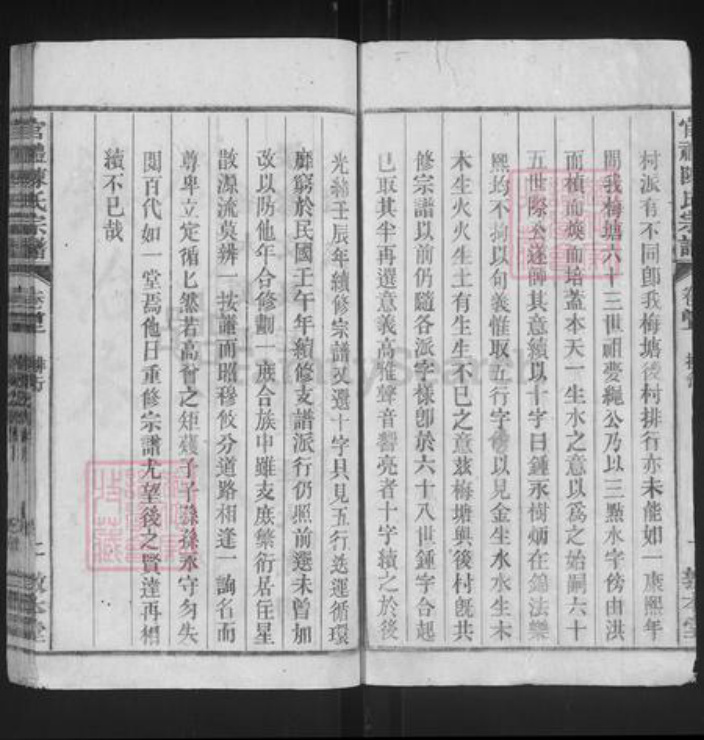 村派有不同卽我梅塘後村排行亦未能如一康熙年
間我梅塘六十三世祖夔繩公乃以三點水字傍由洪
而楨而煥而培蓋本天一生水之意以爲之始嗣六十
五世際丞遂師其意續以十字曰鍾永樹炳在錦法樂
熙均不拘以句義惟取五行字以見金生水水生木
木生火火生土有生生不已之意茲梅塘與後村旣共
修宗譜以前仍隨各派字樣卽於六十八世鍾字合起
已取其半再選意義高雅聲音響亮者十字續之於後
光緒壬辰年續修宗譜又選十字具見五行迭運循環
靡窮於民國壬午年續修支譜派行仍照前選未曾加
改以防他年合修劃一庶合族中雖支庶繁衍居住星
散源流莫辨一按譜而昭穆攸分道路相逢一詢名而
尊卑立定循匕然若高曾之矩矱子子孫孫永守勿失
閱百代如一堂焉他日重修宗譜尤望後之賢達再相
續不已哉
官禮陳氏宗譜
卷首
排行
敦本堂
FamilySearch